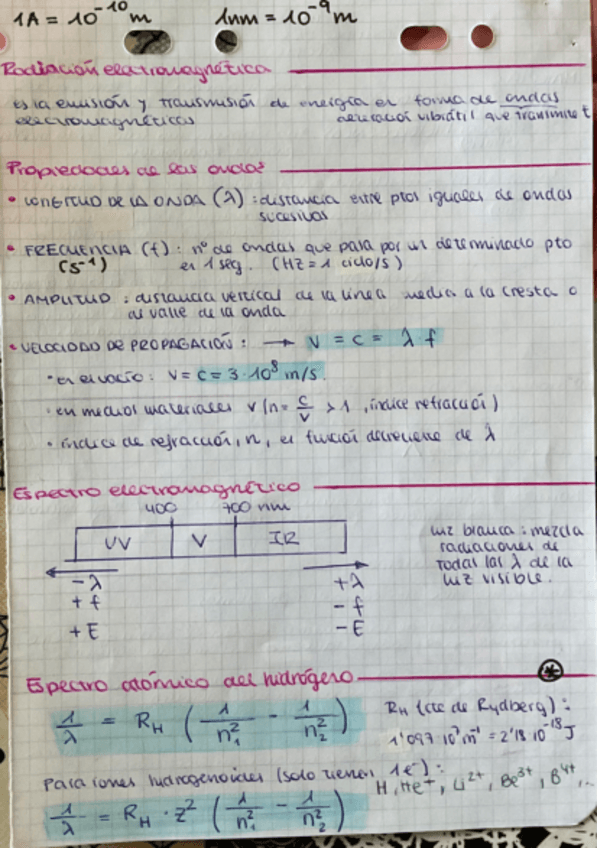 1A = 10⁻¹⁰ m 1nm = 10⁻⁹ m
Radiación electromagnética
es la emisión y transmisión de energía en forma de ondas
electromagnéticas vibrátil que transmite E
Propiedades de las ondas
• LONGITUD DE LA ONDA (λ) : distancia entre ptos iguales de ondas
sucesivas
• FRECUENCIA (f) : nº de ondas que pasa por un determinado pto
(s⁻¹) en 1 seg. (Hz = 1 ciclo/s)
• AMPLITUD : distancia vertical de la línea media a la cresta o
al valle de la onda
• VELOCIDAD DE PROPAGACIÓN : → v = c = λ · f
· en el vacío : v = c = 3 · 10⁸ m/s.
· en medios materiales v (n = c/v > 1, índice refracción)
· índice de refracción, n, es función decreciente de λ
Espectro electromagnético
400 700 nm
UV V IR
- λ + λ
+ f - f
+ E - E
luz blanca : mezcla
radiaciones de
todas las λ de la
luz visible.
Espectro atómico del hidrógeno
1/λ = R_H (1/n₁² - 1/n₂²)
R_H (cte de Rydberg) :
1'097·10⁷ m⁻¹ = 2'18·10⁻¹⁸ J
Para iones hidrogenoides (solo tienen 1e⁻) :
H, He⁺, Li²⁺, Be³⁺, B⁴⁺, ...
1/λ = R_H · z² (1/n₁² - 1/n₂²)